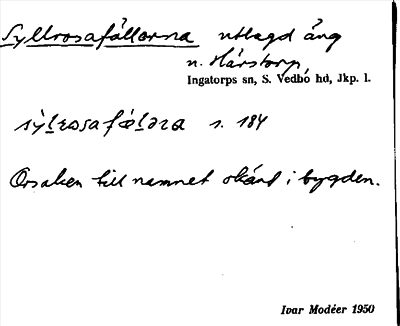 Syllrosafållorna utlagd äng
n. Hårstorp,
Ingatorps sn, S. Vedbo hd, Jkp. l.
s. 184
Orsaken till namnet okänd i bygden.
Ivar Modéer 1950